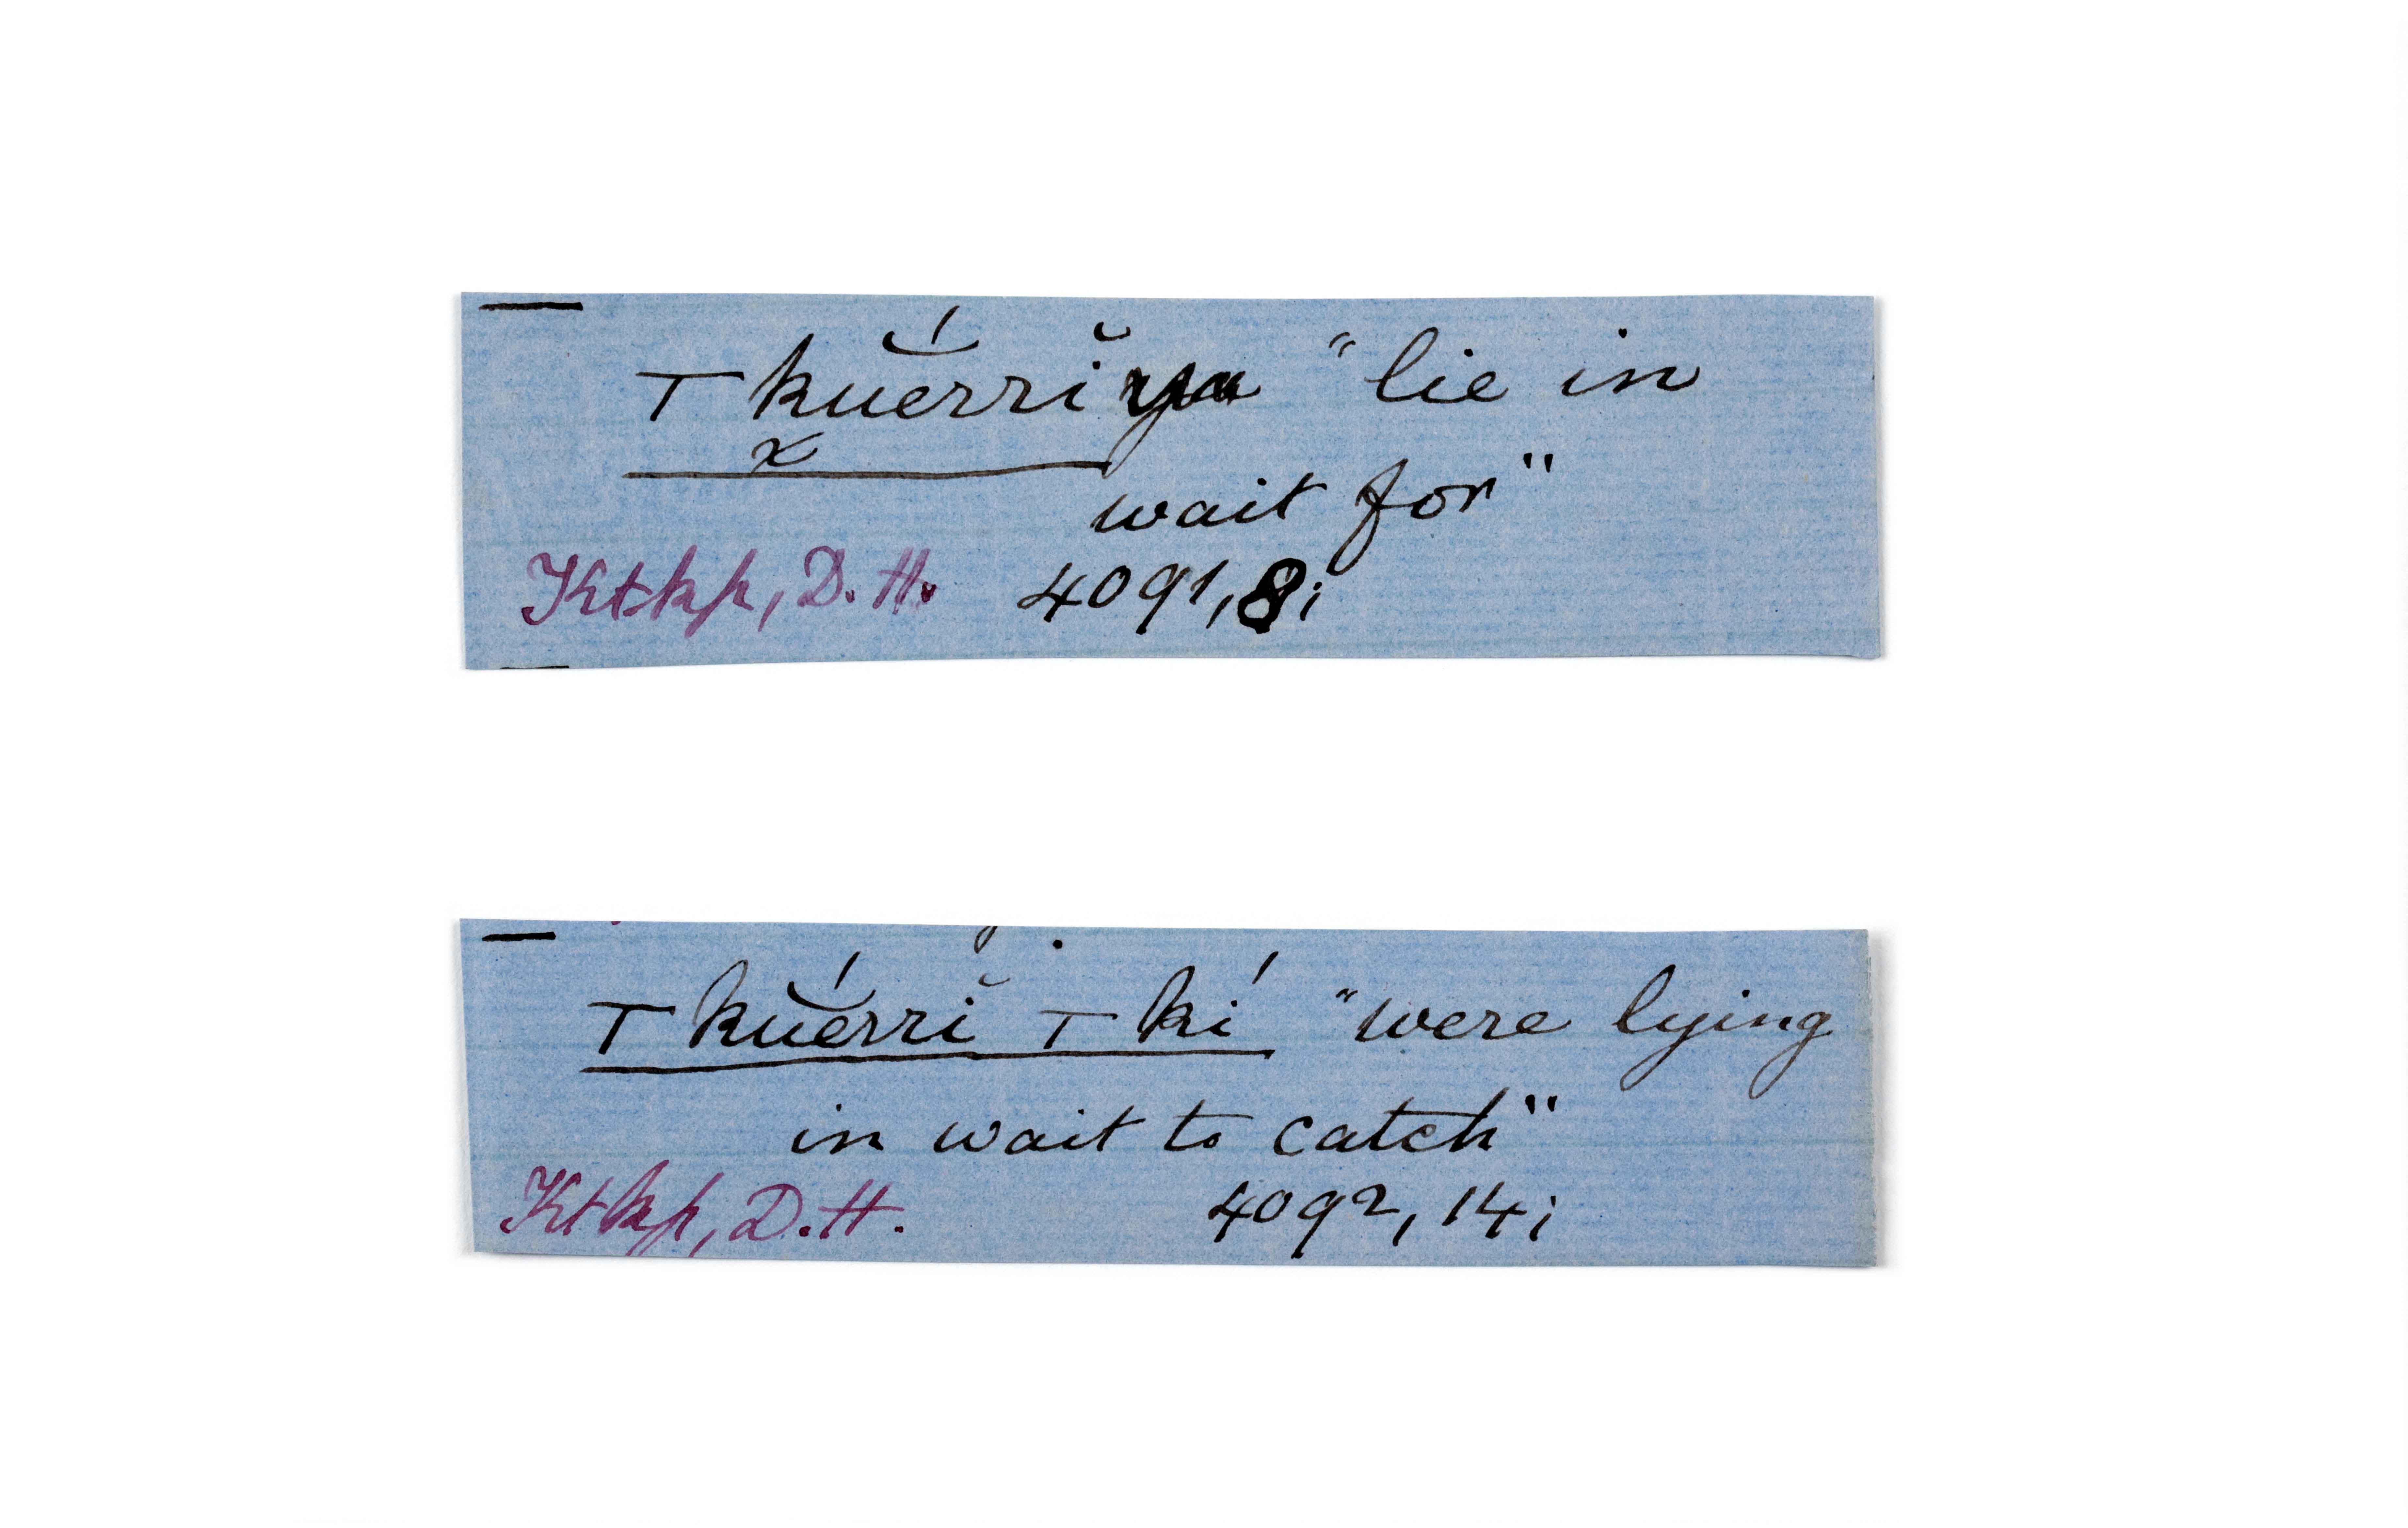 ⊤ kŭé̆rrĭ ya "lie in
x
wait for"
Ktkp, D.H. 4091,8;
⊤ kŭé̆rrĭ ⊤ kí "were lying
in wait to catch"
Ktkp, D.H. 4092, 14;